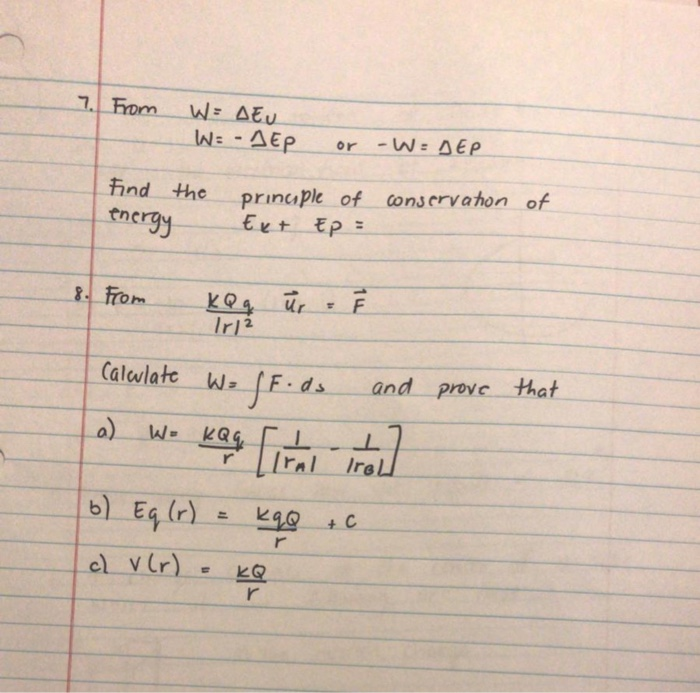 7. From W = ΔEu
W = - ΔEp or - W = ΔEp
Find the principle of conservation of
energy Ek + Ep =
8. From kQq/|r|² u⃗r = F⃗
Calculate W = ∫F · ds and prove that
a) W = kQq/r [1/|rA| - 1/|rB|]
b) Eq (r) = kqQ/r + c
c) V(r) = kQ/r